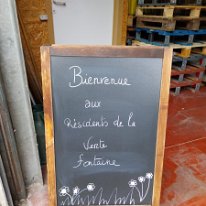 Bienvenue
aux
Résidents de la
Verte
fontaine